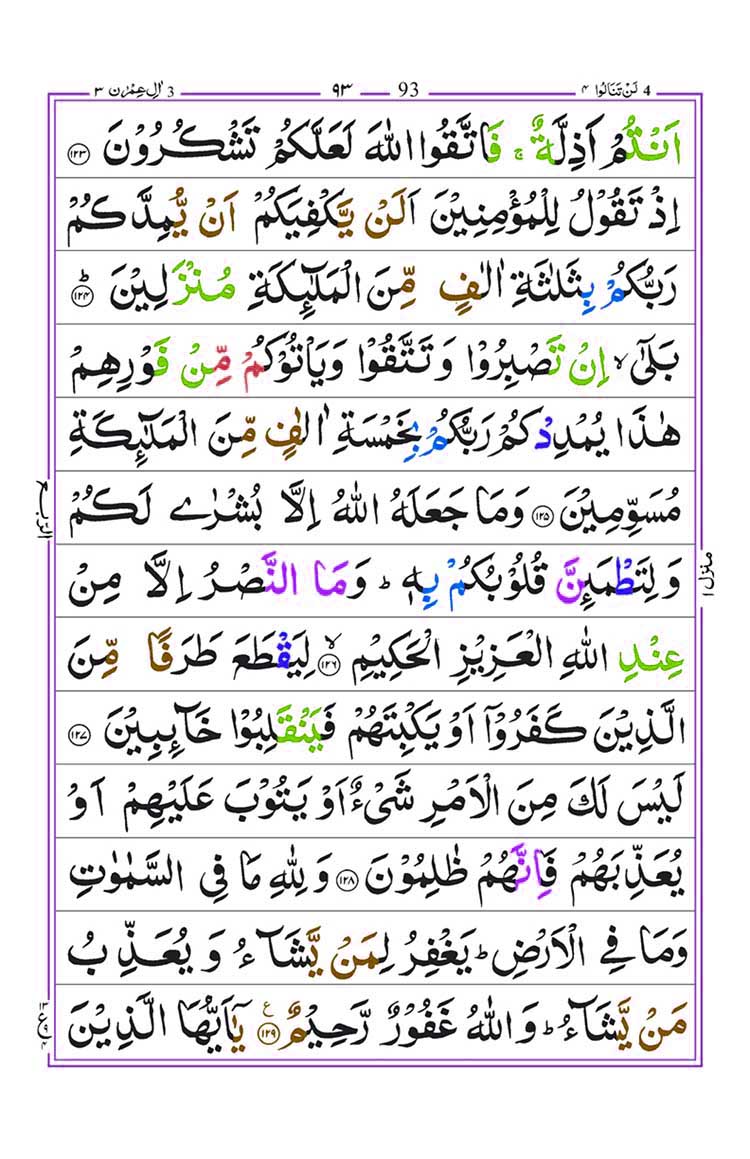 4 لَنۡ تَنَالُوۡا ۴ 93 ۹۳ 3 اٰلِ عِمْرٰن ۳
اَنۡتُمۡ اَذِلَّةٌ ۚ فَاتَّقُوا اللّٰهَ لَعَلَّكُمۡ تَشۡكُرُوۡنَ ﴿۱۲۳﴾
اِذۡ تَقُوۡلُ لِلۡمُؤۡمِنِيۡنَ اَلَنۡ يَّكۡفِيَكُمۡ اَنۡ يُّمِدَّكُمۡ
رَبُّكُمۡ بِثَلٰثَةِ اٰلٰفٍ مِّنَ الۡمَلٰٓٮِٕكَةِ مُنۡزَلِيۡنَ ؕ‏ ﴿۱۲۴﴾
بَلٰٓى ۙ اِنۡ تَصۡبِرُوۡا وَتَتَّقُوۡا وَيَاۡتُوۡكُمۡ مِّنۡ فَوۡرِهِمۡ
هٰذَا يُمۡدِدۡكُمۡ رَبُّكُمۡ بِخَمۡسَةِ اٰلٰفٍ مِّنَ الۡمَلٰٓٮِٕكَةِ
مُسَوِّمِيۡنَ ﴿۱۲۵﴾ وَمَا جَعَلَهُ اللّٰهُ اِلَّا بُشۡرٰى لَكُمۡ
الرّبع
وَلِتَطۡمَٮِٕنَّ قُلُوۡبُكُمۡ بِهٖ‌ؕ وَمَا النَّصۡرُ اِلَّا مِنۡ
منزل ۱
عِنۡدِ اللّٰهِ الۡعَزِيۡزِ الۡحَكِيۡمِۙ ﴿۱۲۶﴾ لِيَقۡطَعَ طَرَفًا مِّنَ
الَّذِيۡنَ كَفَرُوۡۤا اَوۡ يَكۡبِتَهُمۡ فَيَنۡقَلِبُوۡا خَآٮِٕبِيۡنَ ﴿۱۲۷﴾
لَيۡسَ لَكَ مِنَ الۡاَمۡرِ شَىۡءٌ اَوۡ يَتُوۡبَ عَلَيۡهِمۡ اَوۡ
يُعَذِّبَهُمۡ فَاِنَّهُمۡ ظٰلِمُوۡنَ ﴿۱۲۸﴾ وَلِلّٰهِ مَا فِى السَّمٰوٰتِ
وَمَا فِى الۡاَرۡضِ‌ؕ يَغۡفِرُ لِمَنۡ يَّشَآءُ وَيُعَذِّبُ
مَنۡ يَّشَآءُ‌ؕ وَاللّٰهُ غَفُوۡرٌ رَّحِيۡمٌ ﴿۱۲۹﴾ ع يٰۤاَيُّهَا الَّذِيۡنَ
۱۳ ع ۹ ۴